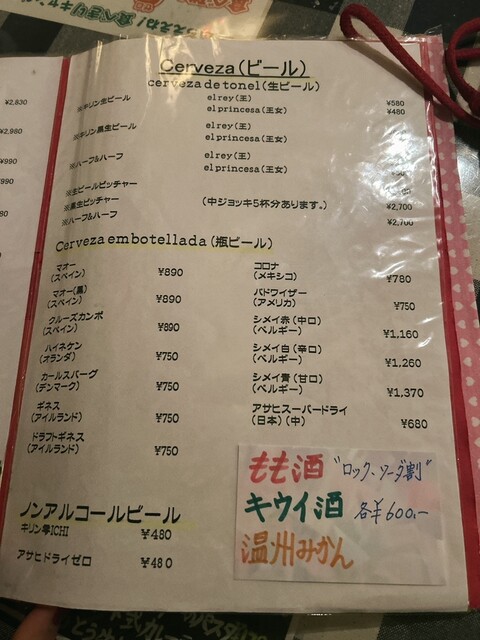 Cerveza(ビール)
cerveza de tonel(生ビール)
※キリン生ビール el rey(王) ¥580
el princesa(王女) ¥480
※キリン黒生ビール el rey(王)
el princesa(王女)
※ハーフ&ハーフ el rey(王)
el princesa(王女)
※生ビールピッチャー
※黒生ピッチャー (中ジョッキ5杯分あります。) ¥2,700
※ハーフ&ハーフ ¥2,700
Cerveza embotellada(瓶ビール)
マオー ¥890
(スペイン)
マオー(黒) ¥890
(スペイン)
クルーズカンポ ¥890
(スペイン)
ハイネケン ¥750
(オランダ)
カールスバーグ ¥750
(デンマーク)
ギネス ¥750
(アイルランド)
ドラフトギネス ¥750
(アイルランド)
コロナ ¥780
(メキシコ)
バドワイザー ¥750
(アメリカ)
シメイ赤(中口) ¥1,160
(ベルギー)
シメイ白(辛口) ¥1,260
(ベルギー)
シメイ青(甘口) ¥1,370
(ベルギー)
アサヒスーパードライ ¥680
(日本)(中)
ノンアルコールビール
キリン零ICHI ¥480
アサヒドライゼロ ¥480
もも酒 "ロック、ソーダ割"
キウイ酒 各¥600,-
温州みかん
¥2,830
¥2,980
¥990
¥990